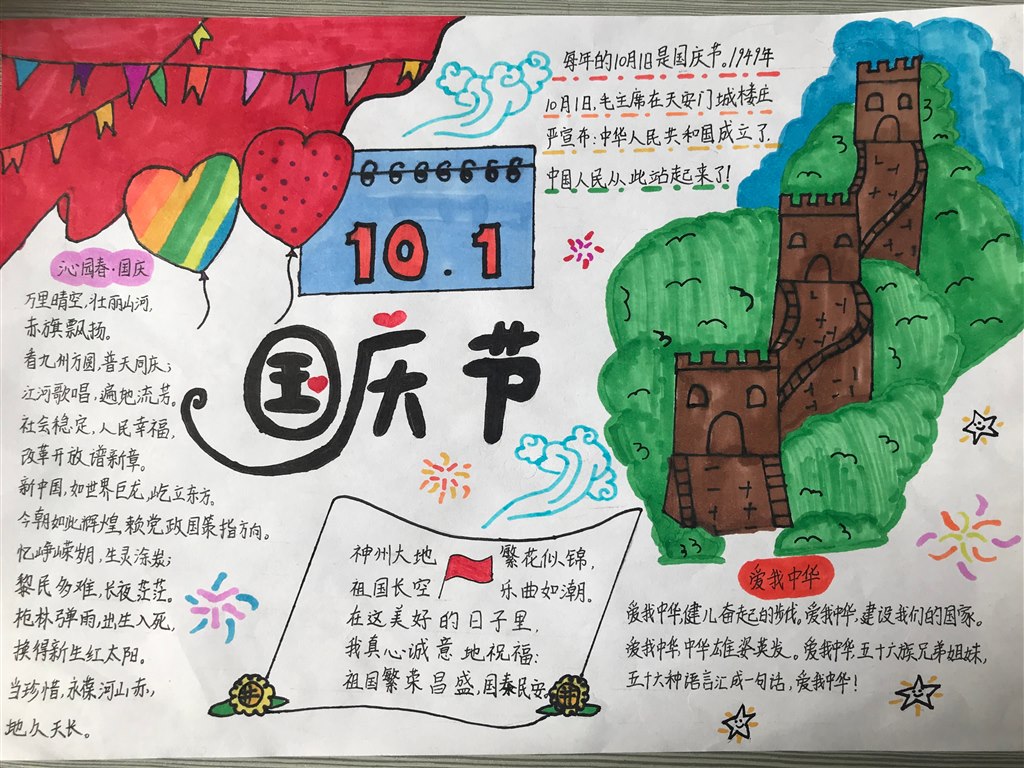 每年的10月1日是国庆节。1949年
10月1日,毛主席在天安门城楼庄
严宣布:中华人民共和国成立了
中国人民从此站起来了!
10.1
国庆节
沁园春·国庆
万里晴空,壮丽山河,
赤旗飘扬。
看九州方圆,普天同庆;
江河歌唱,遍地流芳。
社会稳定,人民幸福,
改革开放谱新章。
新中国,如世界巨龙,屹立东方。
今朝如此辉煌,赖党政国策指方向。
忆峥嵘岁月,生灵涂炭;
黎民多难,长夜茫茫。
枪林弹雨,出生入死,
换得新生红太阳。
当珍惜,永葆河山赤,
地久天长。
神州大地 繁花似锦,
祖国长空 乐曲如潮。
在这美好的日子里,
我真心诚意地祝福:
祖国繁荣昌盛,国泰民安
爱我中华
爱我中华,健儿奋起的步伐。爱我中华,建设我们的国家。
爱我中华,中华雄姿英发。爱我中华,五十六族兄弟姐妹,
五十六种语言汇成一句话,爱我中华!